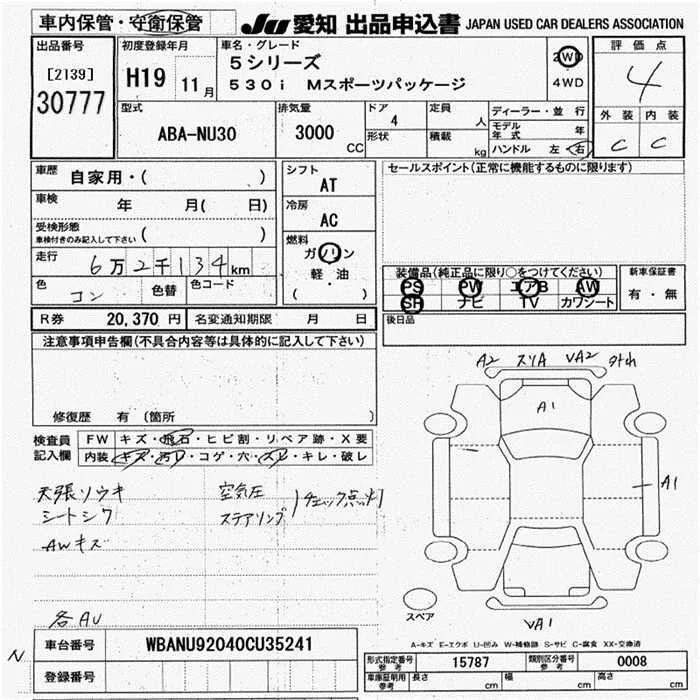 車内保管・守衛保管
JU 愛知 出品申込書 JAPAN USED CAR DEALERS ASSOCIATION
出品番号
[2139]
30777
初度登録年月
H19 11月
車名・グレード
5シリーズ
530i Mスポーツパッケージ
2WD
4WD
評価点
4
外装 内装
C C
型式
ABA-NU30
排気量
3000 CC
ドア 4
形状
定員 人
積載 kg
ディーラー・並行
モデル年式 年
ハンドル 左 右
車歴 自家用・( )
車検 年 月( 日)
受検形態
車検付きのみ記入して下さい ( )
走行 6万2千134km
色 コン 色替 色コード
シフト
AT
冷房
AC
燃料
ガソリン
軽・油
( )
セールスポイント(正常に機能するものに限ります)
装備品(純正品に限り○をつけてください)
PS PW エアB AW
SR ナビ TV カワシート
新車保証書
有・無
R券 20,370円 名変通知期限 月 日
後日品
注意事項申告欄(不具合内容等は具体的に記入して下さい)
修復歴 有 (箇所 )
検査員記入欄
FW キズ・飛石・ヒビ割・リペア跡・X要
内装 キズ・汚レ・コゲ・穴・スレ・キレ・破レ
天張ソウキ
シートシワ
AWキズ
空気圧
ステアリング
チェック点灯
各AU
A2 スリA VA2
A1
A1
スペア
VA1
A-キズ E-エクボ U-凹み W-補修跡 S-サビ C-腐食 XX-交換済
N
車台番号 WBANU92040CU35241
登録番号
形式指定番号参考 15787 類別区分番号参考 0008
車庫証明用参考 長さ cm 幅 cm 高さ cm